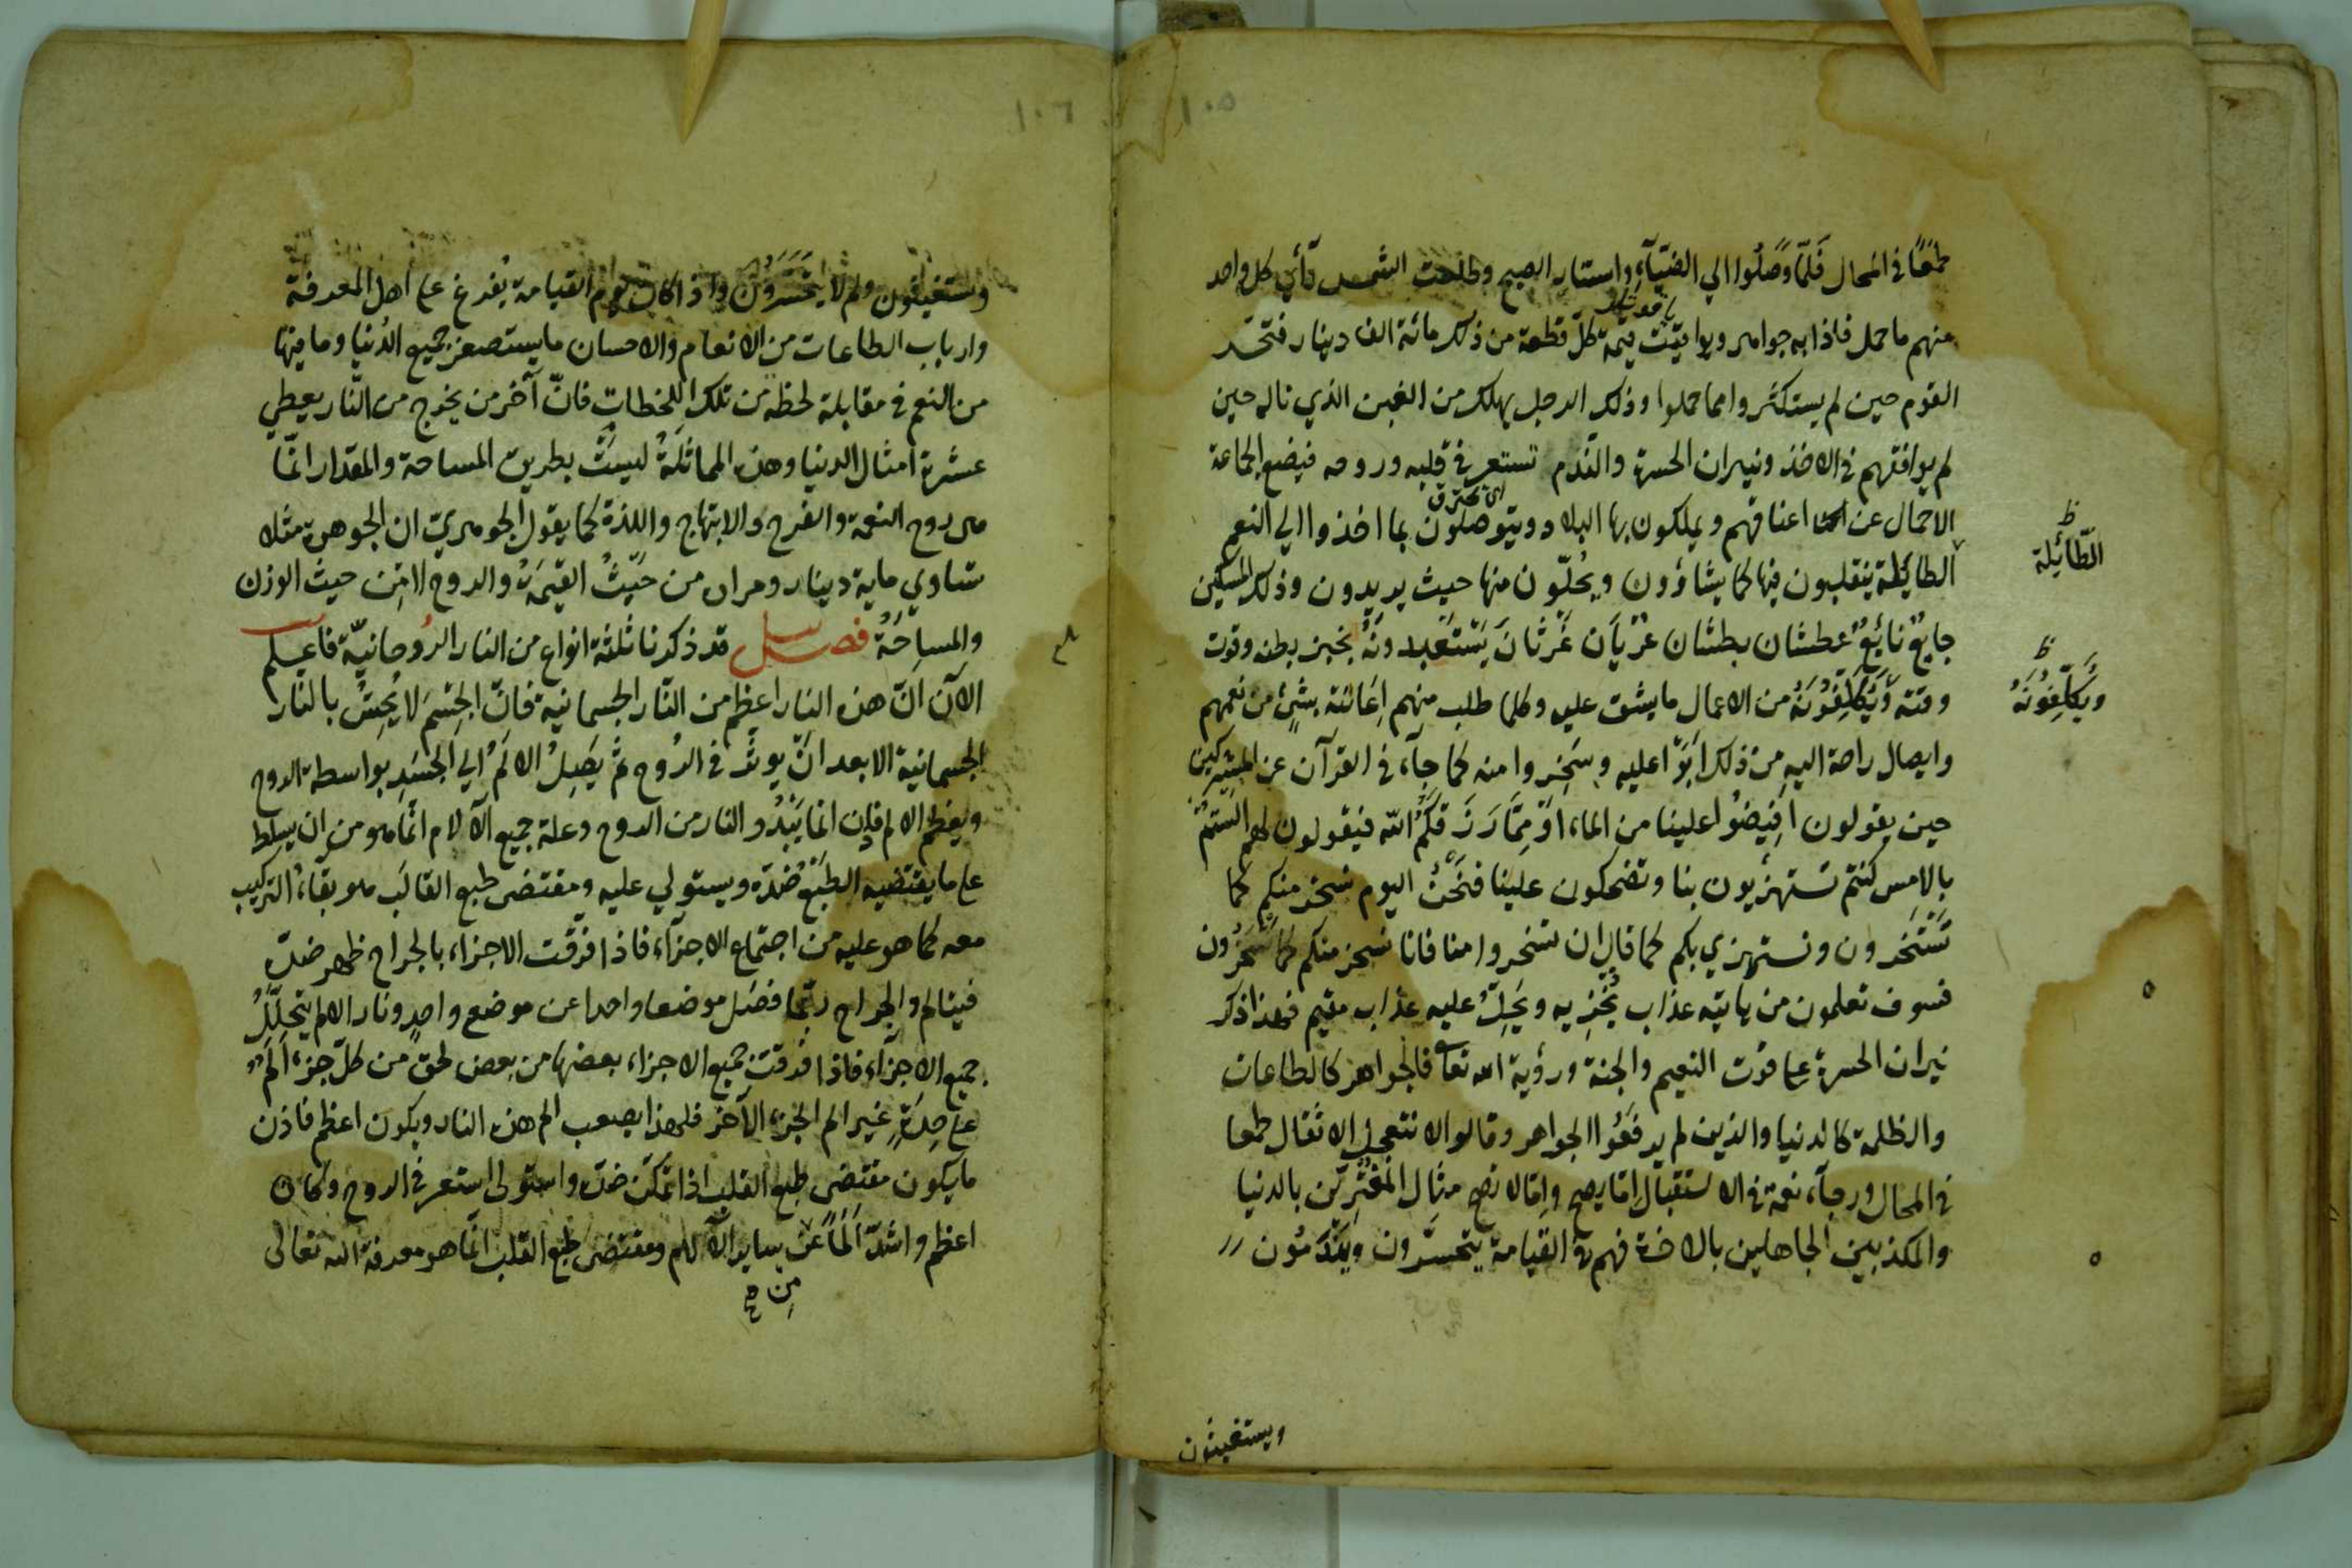 ١٠٥
طمعًا في المحال فَلَمّا وصَلُوا الي الضيَآءِ واستنار الصبح وطلعت الشمس رأي كل واحد
منهم ما حمل فاذا به جواهر ويواقيت قيمة كلّ قطعة من ذلك مائة الف دينار فتحسّر
القوم حين لم يستكثروا مما حملوا وذلك الرجل يهلك من الغبن الذي ناله حين
لم يوافقهم في الاخذ ونيران الحسرة والندم تستعر في قلبه وروحه فيضع الجماعة
اي تحترق
الاحمال عن اعناقهم ويملكون بها البلاد ويتوصلون بما اخذوا الي النعم
الطائلة ينقلبون فيها كما يشاؤون ويحُلّون منها حيث يريدون وذلك المسكين
ظ
الطّائلة
جايعٌ نائعٌ عطشان بطشان عُرْيَان غَرْثَانَ يَسْتَعْبدونَهُ بخبز بطنه وقوت
وقته وَيُكَلِّفُونَهُ من الاعمال ما يشق عليه وكلما طلب منهم اِغاثة بشئٍ من نعمهم
ظ
ويُكَلِّفُونَهُ
وايصال راحة اليه من ذلك اَبَوْا عليه وسَخِروا منه كما جآء في القرآن عن المشركين
حين يقولون اَفِيضُوا علينا من الماء اوْ مِمَّا رَزَقَكُمُ الله فيقولون لهم الستمْ
بالامس كنتم تستهزيون بنا وتضحكون علينا فنَحْنُ اليوم نسخر منكم كما
تَسْتَخرون ونستهزي بكم كما قال ان تسخروا منا فانا نسخر منكم كما تَسْخَرُون
فسوف تعلمون من ياتيه عذاب يُخْزِيه ويَحِلُّ عليه عذاب مقيم فهذا ذكر
نيران الحسرة على فَوت النعيم والجنة ورؤية الله تعا فالجواهر كالطاعات
والظلمة كالدنيا والذين لم يرفعُوا الجواهر وقالوا لا نتعجل الاثقال طمعا
في المحال ورجآء نعمة في الاستقبال اِمّا يصح واِمّا لا يصح مثال المُغْتَرِّين بالدنيا
والمكذبين الجاهلين بالاخرة فهم في القيامة يتحسّرون ويَتَنَدَّمُون
ويستغيثون
١٠٦
ويستغيثون ولم لا يتحَسَّرُون واذا كان يوم القيامة يُفرغ على اهل المعرفة
وارباب الطاعات من الانعام والاحسان ما يستصغر جميع الدُنيا وما فيها
من النعم في مقابلة لحظة من تلك اللحظات فانّ آخر من يخرج من النّار يعطي
عشرة امثال الدنيا وهذه المماثَلَةُ ليستْ بطريق المساحة والمقدار انّما
هى روح النعمة والفرح والابتهاج واللذة كما يقول الجوهريّ ان الجوهرة مثلا
تساوي ماية دينار ومراده من حَيْثُ القيْمَةُ والروح لا مِن حيث الوزن
والمساحَةُ فصـل قد ذكرنا ثلثة انواع من النار الرُوحانيّة فاعلم
الآن انّ هذه النار اعظم من النّار الجسمانية فانّ الجِسْمَ لا يُحِسُّ بالنار
الجسمانية الا بعد انْ يوثّر في الرُوح ثُم يَصِلُ الالَمُ الي الجَسَدِ بواسطة الروح
ويعظم الالم فاِن انما يَبْدُو النار من الروح وعلة جميع الآلام انّما هو من ان يسلط
على ما يقتضيه الطبْعُ ضُدّه ويستولي عليه ومقتضى طبع القالَب هو بقاء التركيب
معه كما هو عليه من اجتماع الاجزآء فاذا فرّقت الاجزاء بالجراح ظهر ضدّه
فيتالم والجراح ربّما فصَل موضعا واحدا عن موضع واحدٍ ونار الالم يتحلّلُ
جميع الاجزآء فاذا فرّقت جميع الاجزاء بعضها من بعض لحق من كلّ جزء اَلمٌ
على حِدَةٍ غير الم الجزء الآخر فلهذا يصعب الم هذه النار ويكون اعظم فاذن
ما يكون مقتضى طبع القلب اذا تمكّن ضدّه واستولى استعر في الروح وكان
اعظم واشدّ اَلَماً عن ساير الآلام ومقتضى طبع القلب انّما هو معرفة الله تعالى
مِن صح